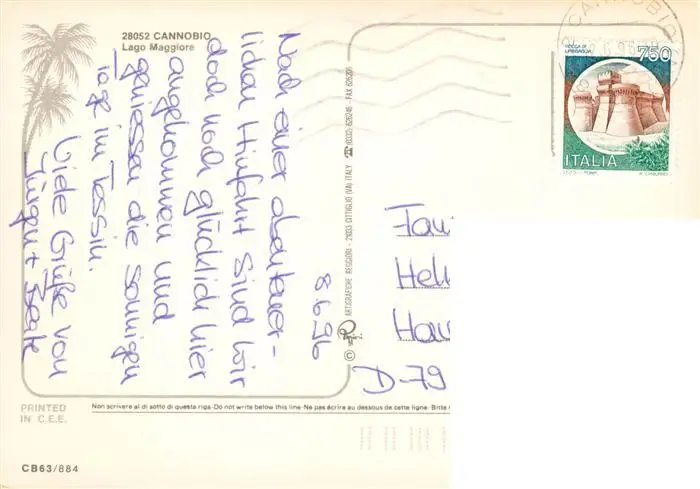 28052 CANNOBIO
Lago Maggiore
8.6.96
Nach einer abenteuer-
lichen Hinfahrt sind wir
doch noch glücklich hier
angekommen und
geniessen die sonnigen
Tage im Tessin.
Viele Grüße von
Jürgen + Beate
© ARTIGRAFICHE REGGIORI - 21033 CITTIGLIO (VA) ITALY ☎ (0332) 626245 - FAX 626205
CANNOBIO
ROCCA DI
URBISAGLIA
750
ITALIA
I.P.Z.S. - ROMA
Fam
Hel
D-79
PRINTED
IN C.E.E.
Non scrivere al di sotto di questa riga-Do not write below this line-Ne pas écrire au dessous de cette ligne- Bitte
CB63/884